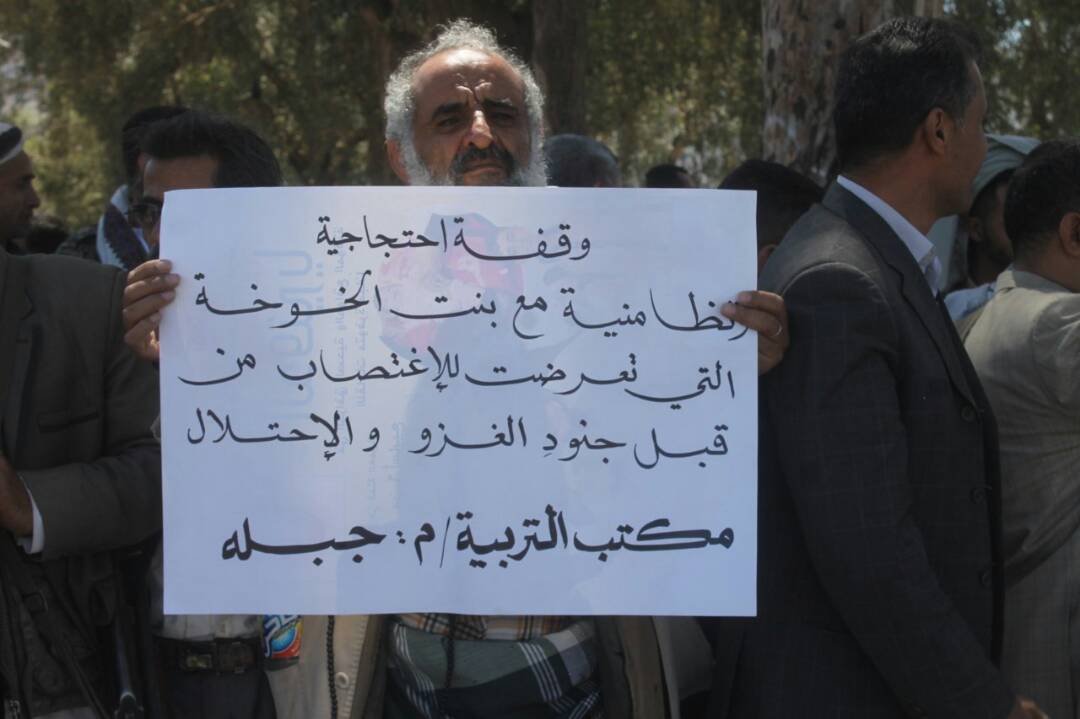 وقفة احتجاجية
تظامنية مع بنت الخوخة
التي تعرضت للإغتصاب من
قبل جنودِ الغزو والإحتلال
مكتب التربية/م: جبله